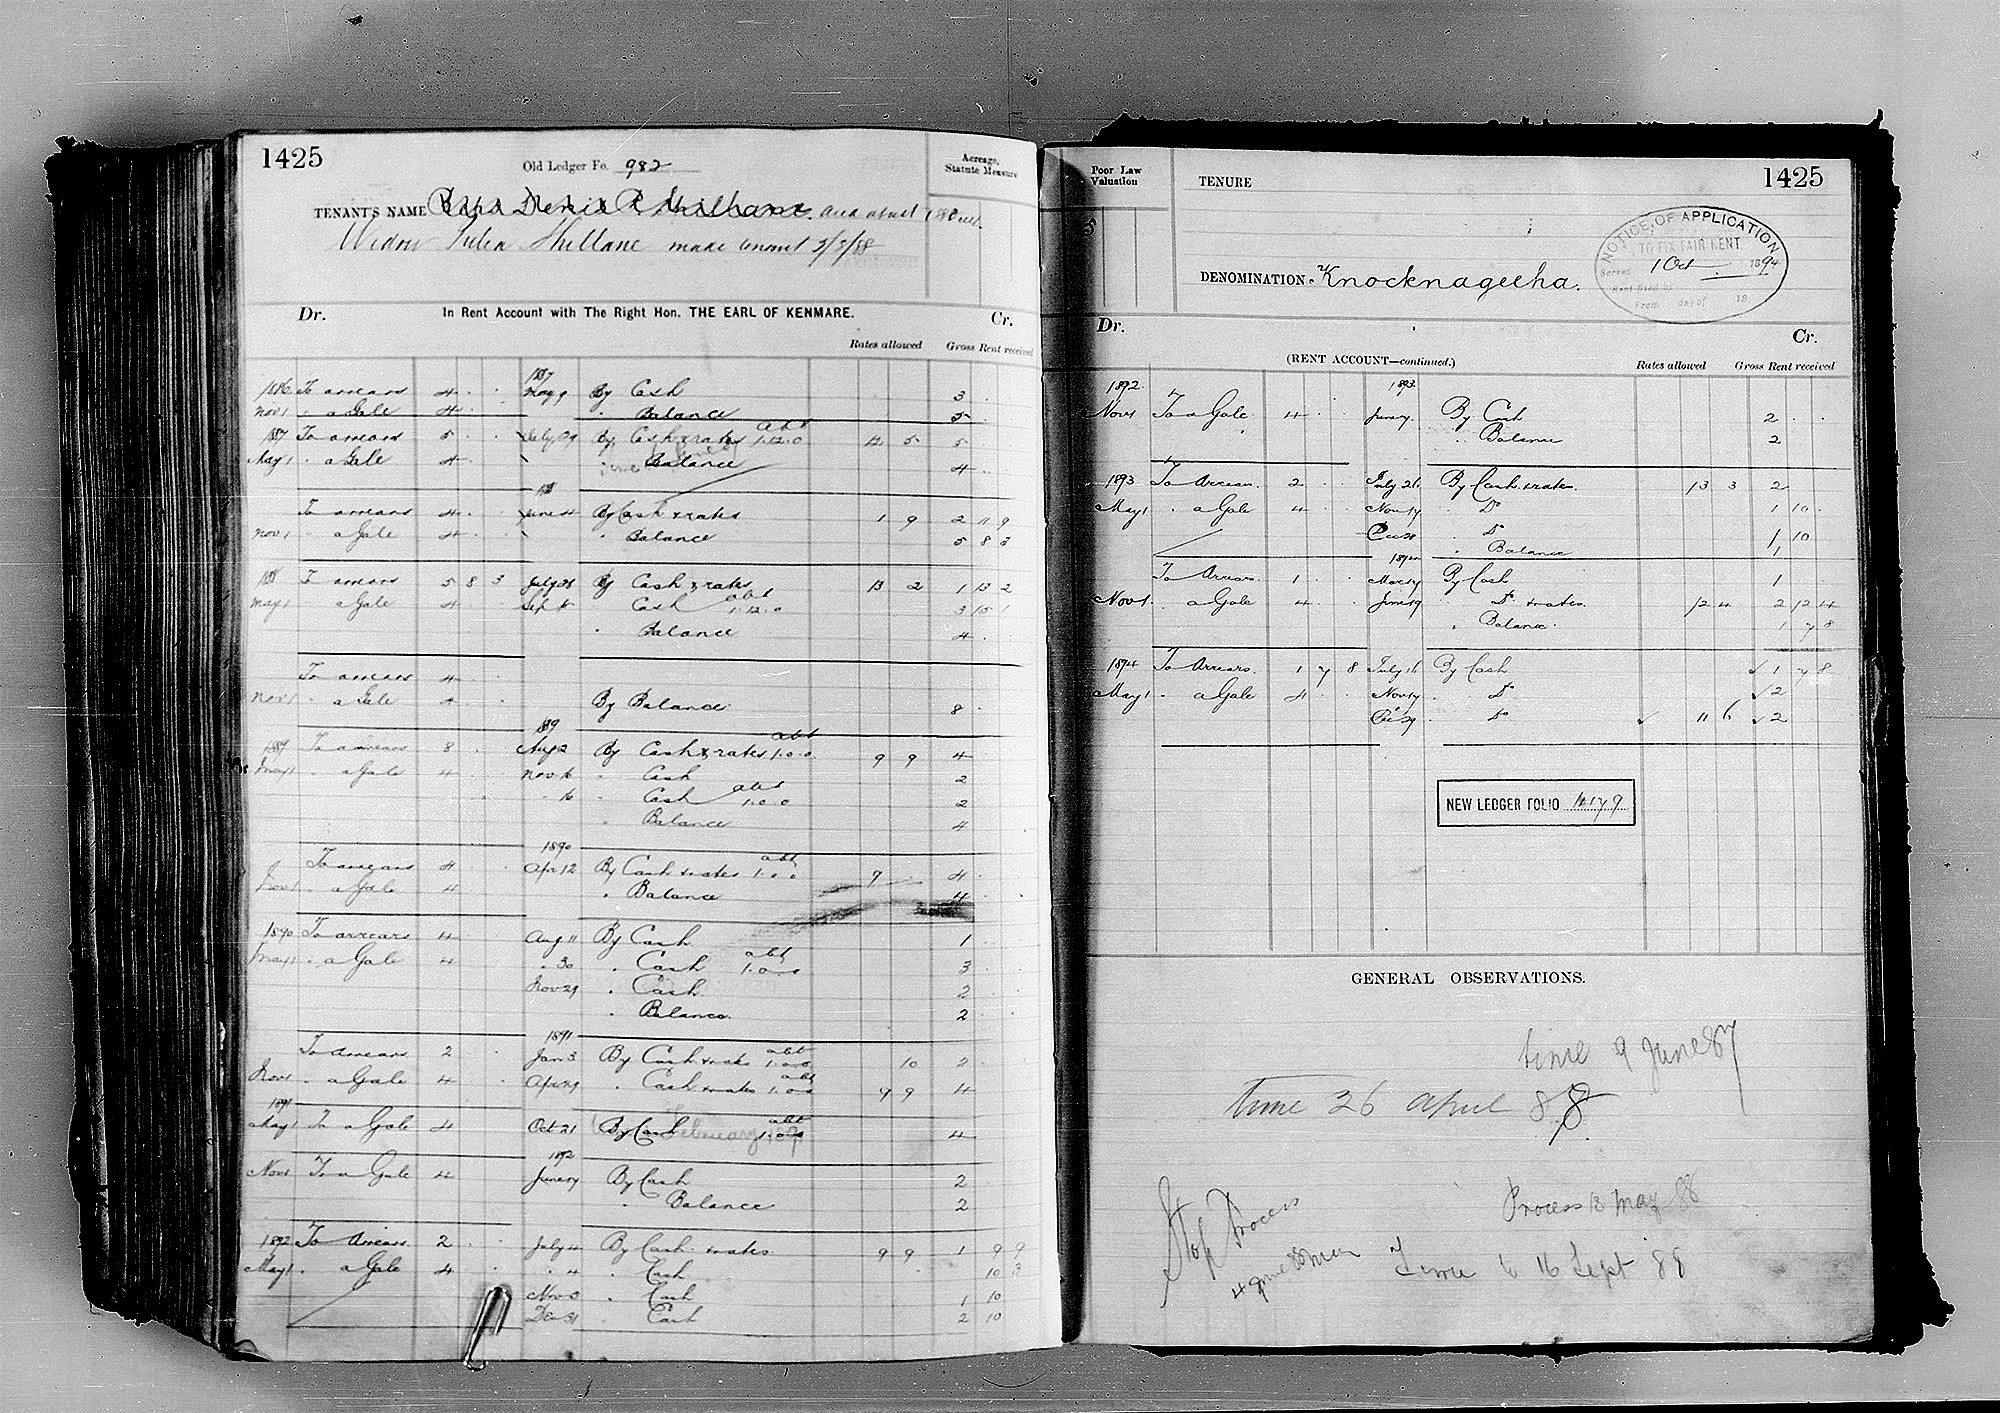 1425
Old Ledger Fo. 982
Acreage,
Statute Measure
TENANT'S NAME
Widow Julia Shillane made tenant 3/5/88
Dr. In Rent Account with The Right Hon. THE EARL OF KENMARE. Cr.
Rates allowed Gross Rent received
1887
1886 To arrears 4 . . May 9 By Cash 3 .
Nov 1 " a Gale 4 . " Balance 5 .
1887 To arrears 5 . . July 29 By Cash & rates abt 1.12.0 12 5 5
May 1 " a Gale 4 . " Balance 4 .
188
To arrears 4 . . June 4 By Cash & rates 1 9 2 11 9
Nov 1 " a Gale 4 . " Balance 5 8 3
188 To arrears 5 8 3 July 26 By Cash & rates 13 2 1 13 2
May 1 " a Gale 4 . Sept 8 Cash abt 1.12.0 3 15 1
" Balance 4 .
To arrears 4 .
Nov 1 " a Gale 4 . By Balance 8 .
1889
1889 To arrears 8 . Aug 2 By Cash & rates abt 1.0.0 9 9 4
May 1 " a Gale 4 . Nov 16 " Cash 2
" 16 " Cash abt 1.0.0 2
" Balance 4
1890
To arrears 4 . Apr 12 By Cash & rates abt 1.0.0 9 . 4 .
Nov 1 " a Gale 4 " Balance 4 .
1890 To arrears 4 . Aug 11 By Cash 1 .
May 1 " a Gale 4 . " 30 " Cash abt 1.0.0 3 .
Nov 29 " Cash 2 .
" Balance 2 .
1891
To arrears 2 . Jan 3 By Cash & rates abt 1.0.0 10 2
Nov 1 " a Gale 4 . Apr 29 " Cash & rates abt 1.0.0 9 9 4
1891
May 1 To a Gale 4 . Oct 21 By Cash abt 1.0.0 4
1892
Nov 1 To a Gale 4 June 17 By Cash 2
" Balance 2
1892 To Arrears 2 . July 4 By Cash & rates 9 9 1 9 9
May 1 " a Gale 4 . " 4 " Cash 10 3
Nov 3 " Cash 1 10
Dec 31 " Cash 2 10
Poor Law
Valuation
TENURE
1425
NOTICE OF APPLICATION
TO FIX FAIR RENT
Served 1 Oct 1894
Rent fixed by
From day of 18
DENOMINATION. Knocknageeha.
Dr. Cr.
(RENT ACCOUNT—continued.) Rates allowed Gross Rent received
1892 1893
Nov 1 To a Gale 4 . . June 17 By Cash 2 . .
" Balance 2
1893 To Arrears 2 . . July 26 By Cash & rates 13 3 2
May 1 " a Gale 4 . . Nov 17 " Do 1 10 .
Dec 28 Do 1 10
" Balance 1
1894
To Arrears 1 . . Mar 17 By Cash 1
Nov 1 " a Gale 4 . . June 19 " Do & rates 12 4 2 12 4
" Balance 1 7 8
1894 To Arrears 1 7 8 July 16 By Cash ✓ 1 7 8
May 1 " a Gale 4 . Nov 17 " Do ✓ 2
Dec 29 " Do ✓ 11 6 ✓ 2
NEW LEDGER FOLIO 1479
GENERAL OBSERVATIONS.
time 9 June 87
time 26 april 88
Stop Process
Process 18 May 88
Time to 16 Sept 88